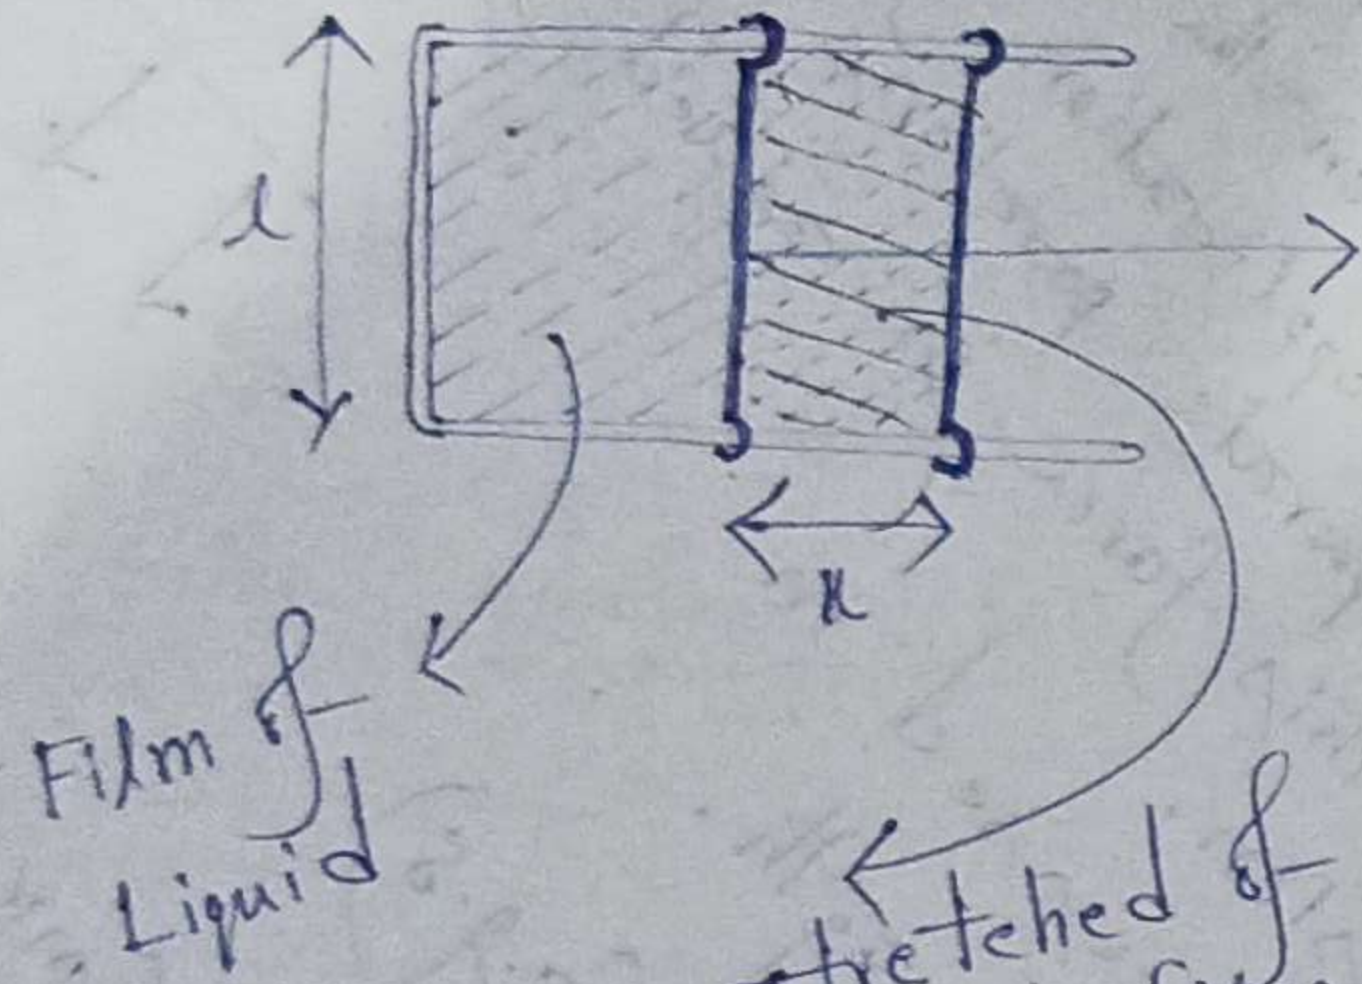 l
x
Film of
Liquid
stretched of